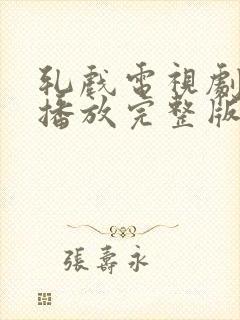 軋戲電視劇
播放完整版
張壽永